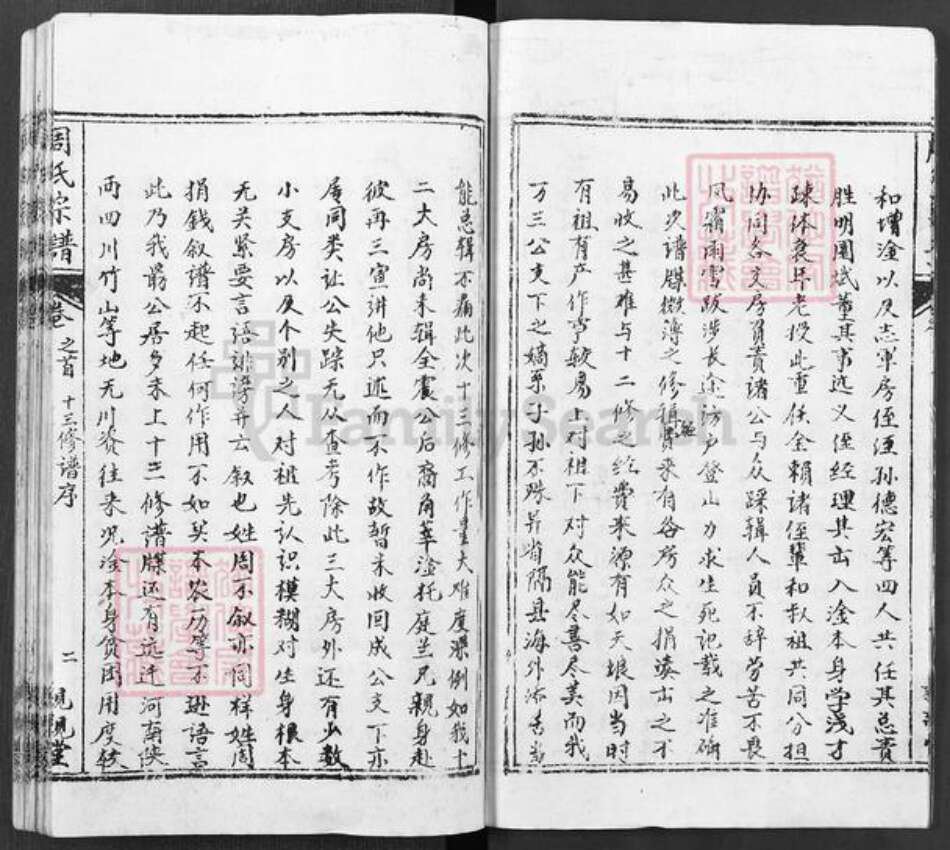 和增淦以及志军房侄侄孙德宏等四人共任其总责
胜明围斌董其事选义侄经理其出入淦本身学浅才
疎体衰年老授此重任全赖诸侄辈和叔祖共同分担
协同各支房負责诸公与众踩辑人员不辞劳苦不畏
风霜雨雪跋涉长途访户登山力求生死记载之准确
此次谱牒微薄之修稱经费来有各房众之捐凑出之不
易收之甚难与十二修之经费来源有如天埌因当时
有祖有产作亨较易上对祖下对众能尽善尽美而我
万三公支下之嫡系子孙不殊异省隔县海外添吉当
能总辑不漏此次十三修工作量大难度深例如我十
二大房尚未辑全震公后裔角莘淦托庭兰兄親身赴
彼再三宣讲他只述而不作故暂未收回成公支下亦
属同类让公失踪无从查考除此三大房外还有少数
小支房以及个别之人对祖先认识模糊对生身根本
无关紧要言语誹谤并云叙也姓周不叙亦同样姓周
捐錢叙谱不起任何作用不如买本农历等不逊语言
此乃我爵公居多未上十三修谱牒还有远迁河南陕
西四川竹山等地无川资往来况淦本身贫困用度较
周氏宗譜
卷之首
十三修谱序
二
親親堂
FamilySearch